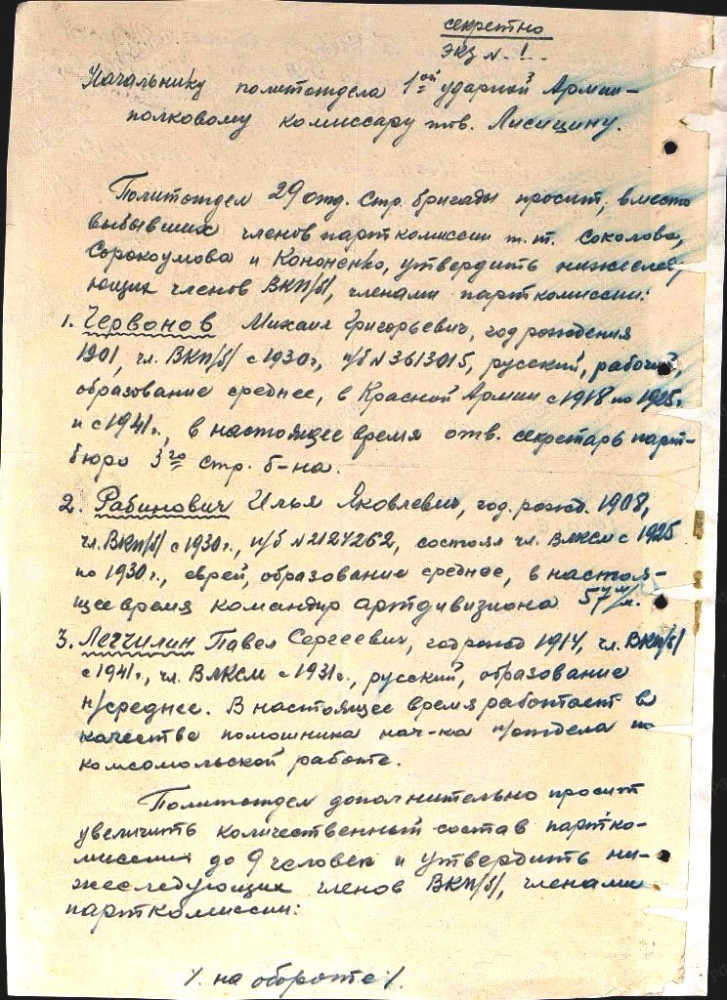 секретно
экз. N. 1.
Начальнику политотдела 1ой ударной Армии –
полковому комиссару тов. Лисицину.
Политотдел 29 отд. Стр. бригады просит, вместо
выбывших членов парткомиссии т.т. Соколова,
Сорокоумова и Кононенко, утвердить нижеследу-
ющих членов ВКП/б/, членами парткомиссии:
1. Червонов Михаил Григорьевич, год рождения
1901, чл. ВКП/б/ с 1930г., п/б N 3613015, русский, рабочий,
образование среднее, в Красной Армии с 1918 по 1925г.
и с 1941г., в настоящее время отв. секретарь парт-
бюро 3го стр. б-на.
2. Рабинович Илья Яковлевич, год. рожд. 1908,
чл. ВКП/б/ с 1930г., п/б N 2124262, состоял чл. ВЛКСМ с 1925
по 1930г., еврей, образование среднее, в настоя-
щее время командир артдивизиона 57 м/м.
3. Легчилин Павел Сергеевич, год рожд 1914, чл. ВКП/б/
с 1941г., чл. ВЛКСМ с 1931г., русский, образование
н/среднее. В настоящее время работает в
качестве помошника нач-ка п/отдела по
комсомольской работе.
Политотдел дополнительно просит
увеличить количественный состав партко-
миссии до 9 человек и утвердить ни-
жеследующих членов ВКП/б/, членами
парткомиссии:
/. на обороте /.